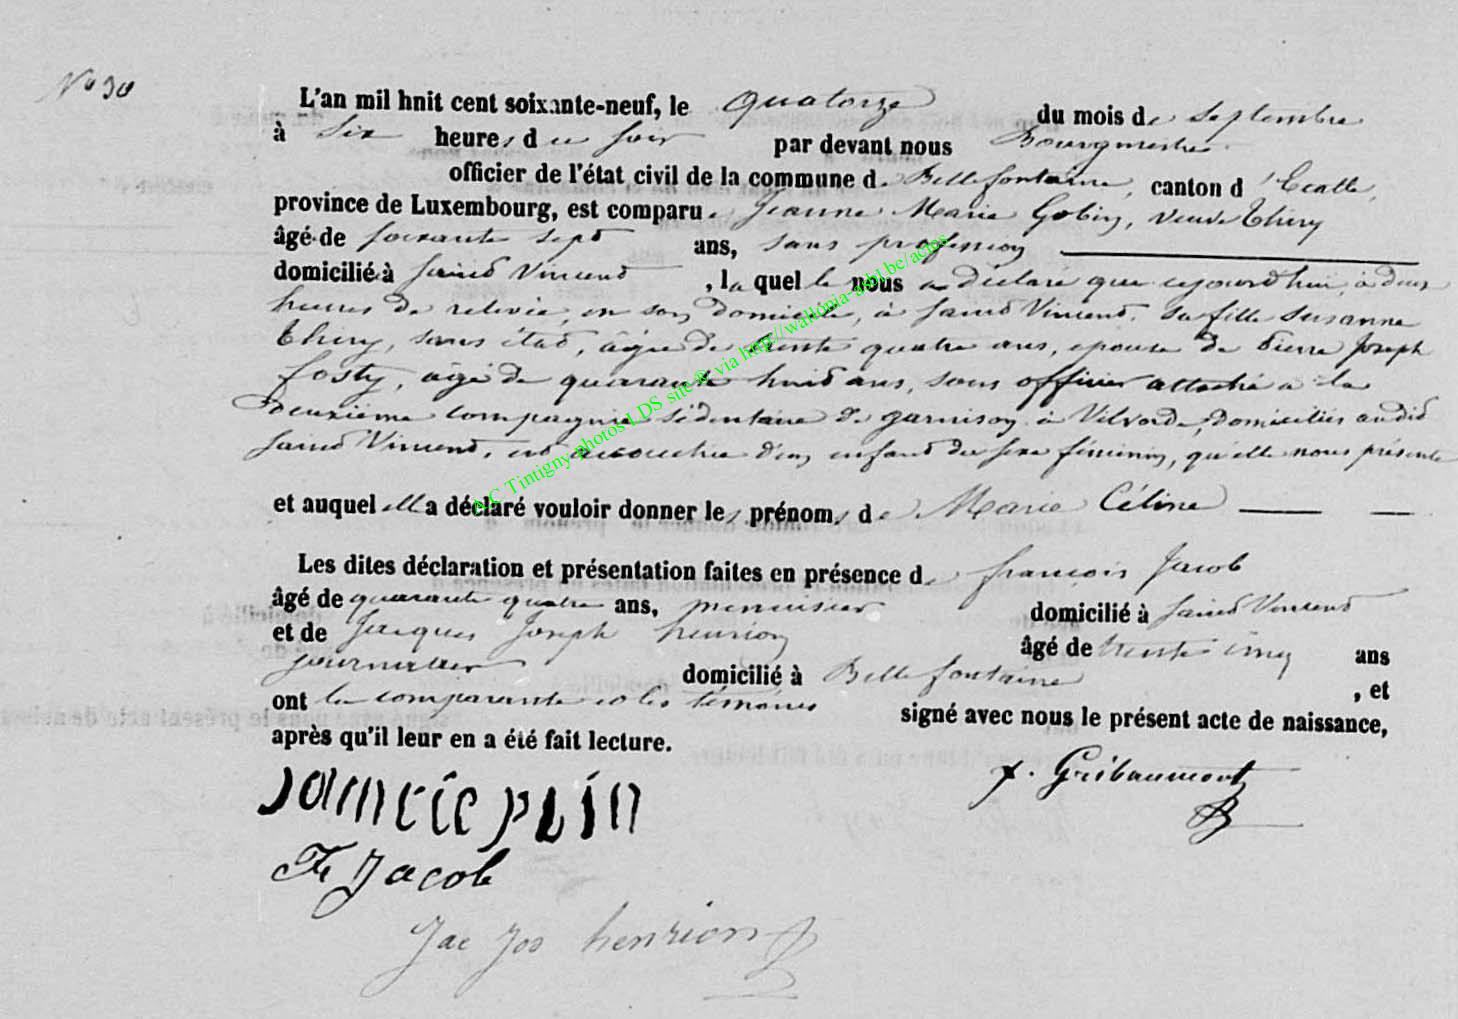 N° 30
L'an mil huit cent soixante-neuf, le quatorze du mois de Septembre
à Six heures du soir par devant nous Bourgmestre
officier de l'état civil de la commune de Bellefontaine, canton d'Etalle,
province de Luxembourg, est comparue Jeanne Marie Gobin, veuve Thiry
âgé de soixante sept ans, sans profession
domicilié à Saint Vincent, laquelle nous a déclaré que cejourd'hui, à deux
heures de relevée, en son domicile, à Saint Vincent, sa fille Susanne
Thiry, sans état, âgée de trente quatre ans, épouse de Pierre Joseph
Fosty, âgé de quarante huit ans, sous officier attaché à la
deuxième compagnie sédentaire de garnison à Vilvorde, domiciliés audit
Saint Vincent, est accouchée d'un enfant du sexe féminin, qu'elle nous présente
et auquel elle a déclaré vouloir donner les prénoms de Marie Céline
Les dites déclaration et présentation faites en présence de françois Jacob
âgé de quarante quatre ans, menuisier domicilié à Saint Vincent
et de Jacques Joseph henrion âgé de trente cinq ans
journalier domicilié à Bellefontaine, et
ont la comparante et les témoins signé avec nous le présent acte de naissance,
après qu'il leur en a été fait lecture.
f. Gribaumont
Fs Jacob
Jac Jos henrion
A.C Tintigny photos LDS site ® via http://wallonia-asbl.be/actes